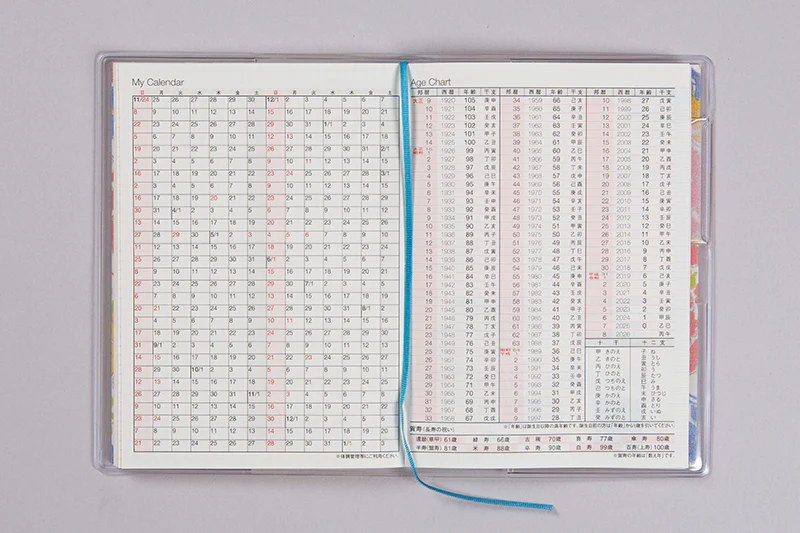 My Calendar
日 月 火 水 木 金 土 日 月 火 水 木 金 土
11/24 25 26 27 28 29 30 12/1 2 3 4 5 6 7
8 9 10 11 12 13 14 15 16 17 18 19 20 21
22 23 24 25 26 27 28 29 30 31 1/1 2 3 4
5 6 7 8 9 10 11 12 13 14 15 16 17 18
19 20 21 22 23 24 25 26 27 28 29 30 31 2/1
2 3 4 5 6 7 8 9 10 11 12 13 14 15
16 17 18 19 20 21 22 23 24 25 26 27 28 3/1
2 3 4 5 6 7 8 9 10 11 12 13 14 15
16 17 18 19 20 21 22 23 24 25 26 27 28 29
30 31 4/1 2 3 4 5 6 7 8 9 10 11 12
13 14 15 16 17 18 19 20 21 22 23 24 25 26
27 28 29 30 5/1 2 3 4 5 6 7 8 9 10
11 12 13 14 15 16 17 18 19 20 21 22 23 24
25 26 27 28 29 30 31 6/1 2 3 4 5 6 7
8 9 10 11 12 13 14 15 16 17 18 19 20 21
22 23 24 25 26 27 28 29 30 7/1 2 3 4 5
6 7 8 9 10 11 12 13 14 15 16 17 18 19
20 21 22 23 24 25 26 27 28 29 30 31 8/1 2
3 4 5 6 7 8 9 10 11 12 13 14 15 16
17 18 19 20 21 22 23 24 25 26 27 28 29 30
31 9/1 2 3 4 5 6 7 8 9 10 11 12 13
14 15 16 17 18 19 20 21 22 23 24 25 26 27
28 29 30 10/1 2 3 4 5 6 7 8 9 10 11
12 13 14 15 16 17 18 19 20 21 22 23 24 25
26 27 28 29 30 31 11/1 2 3 4 5 6 7 8
9 10 11 12 13 14 15 16 17 18 19 20 21 22
23 24 25 26 27 28 29 30 12/1 2 3 4 5 6
7 8 9 10 11 12 13 14 15 16 17 18 19 20
21 22 23 24 25 26 27 28 29 30 31 1/1 2 3
※体調管理等にご利用ください。
Age Chart
邦暦 西暦 年齢 干支 邦暦 西暦 年齢 干支 邦暦 西暦 年齢 干支
大正 9 1920 105 庚申 34 1959 66 己亥 10 1998 27 戊寅
10 1921 104 辛酉 35 1960 65 庚子 11 1999 26 己卯
11 1922 103 壬戌 36 1961 64 辛丑 12 2000 25 庚辰
12 1923 102 癸亥 37 1962 63 壬寅 13 2001 24 辛巳
13 1924 101 甲子 38 1963 62 癸卯 14 2002 23 壬午
14 1925 100 乙丑 39 1964 61 甲辰 15 2003 22 癸未
大正 15 昭和 1 1926 99 丙寅 40 1965 60 乙巳 16 2004 21 甲申
2 1927 98 丁卯 41 1966 59 丙午 17 2005 20 乙酉
3 1928 97 戊辰 42 1967 58 丁未 18 2006 19 丙戌
4 1929 96 己巳 43 1968 57 戊申 19 2007 18 丁亥
5 1930 95 庚午 44 1969 56 己酉 20 2008 17 戊子
6 1931 94 辛未 45 1970 55 庚戌 21 2009 16 己丑
7 1932 93 壬申 46 1971 54 辛亥 22 2010 15 庚寅
8 1933 92 癸酉 47 1972 53 壬子 23 2011 14 辛卯
9 1934 91 甲戌 48 1973 52 癸丑 24 2012 13 壬辰
10 1935 90 乙亥 49 1974 51 甲寅 25 2013 12 癸巳
11 1936 89 丙子 50 1975 50 乙卯 26 2014 11 甲午
12 1937 88 丁丑 51 1976 49 丙辰 27 2015 10 乙未
13 1938 87 戊寅 52 1977 48 丁巳 28 2016 9 丙申
14 1939 86 己卯 53 1978 47 戊午 29 2017 8 丁酉
15 1940 85 庚辰 54 1979 46 己未 30 2018 7 戊戌
16 1941 84 辛巳 55 1980 45 庚申 平成 31 令和 1 2019 6 己亥
17 1942 83 壬午 56 1981 44 辛酉 2 2020 5 庚子
18 1943 82 癸未 57 1982 43 壬戌 3 2021 4 辛丑
19 1944 81 甲申 58 1983 42 癸亥 4 2022 3 壬寅
20 1945 80 乙酉 59 1984 41 甲子 5 2023 2 癸卯
21 1946 79 丙戌 60 1985 40 乙丑 6 2024 1 甲辰
22 1947 78 丁亥 61 1986 39 丙寅 7 2025 0 乙巳
23 1948 77 戊子 62 1987 38 丁卯 8 2026 丙午
24 1949 76 己丑 63 1988 37 戊辰 十干 十二支
25 1950 75 庚寅 昭和 64 平成 1 1989 36 己巳 甲 きのえ 子 ね
26 1951 74 辛卯 2 1990 35 庚午 乙 きのと 丑 うし
27 1952 73 壬辰 3 1991 34 辛未 丙 ひのえ 寅 とら
28 1953 72 癸巳 4 1992 33 壬申 丁 ひのと 卯 う
29 1954 71 甲午 5 1993 32 癸酉 戊 つちのえ 辰 たつ
30 1955 70 乙未 6 1994 31 甲戌 己 つちのと 巳 み
31 1956 69 丙申 7 1995 30 乙亥 庚 かのえ 午 うま
32 1957 68 丁酉 8 1996 29 丙子 辛 かのと 未 ひつじ
33 1958 67 戊戌 9 1997 28 丁丑 壬 みずのえ 申 さる
癸 みずのと 酉 とり
戌 いぬ
亥 い
賀寿（長寿の祝い）
※「年齢」は誕生日以降の満年齢です。誕生日前の方は「年齢」から1歳を引いてください。
還暦(華甲) 61歳 緑寿 66歳 古稀 70歳 喜寿 77歳 傘寿 80歳
半寿(盤寿) 81歳 米寿 88歳 卒寿 90歳 白寿 99歳 百寿(上寿) 100歳
※賀寿の年齢は「数え年」です。